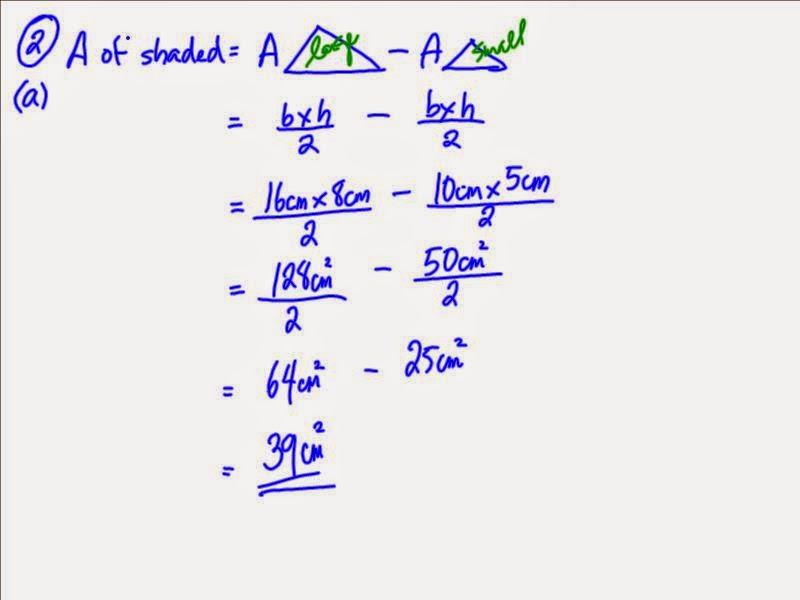 ② A of shaded = A △ - A △ small
(a)
= b×h/2 - b×h/2
= 16cm×8cm/2 - 10cm×5cm/2
= 128cm²/2 - 50cm²/2
= 64cm² - 25cm²
= 39cm²